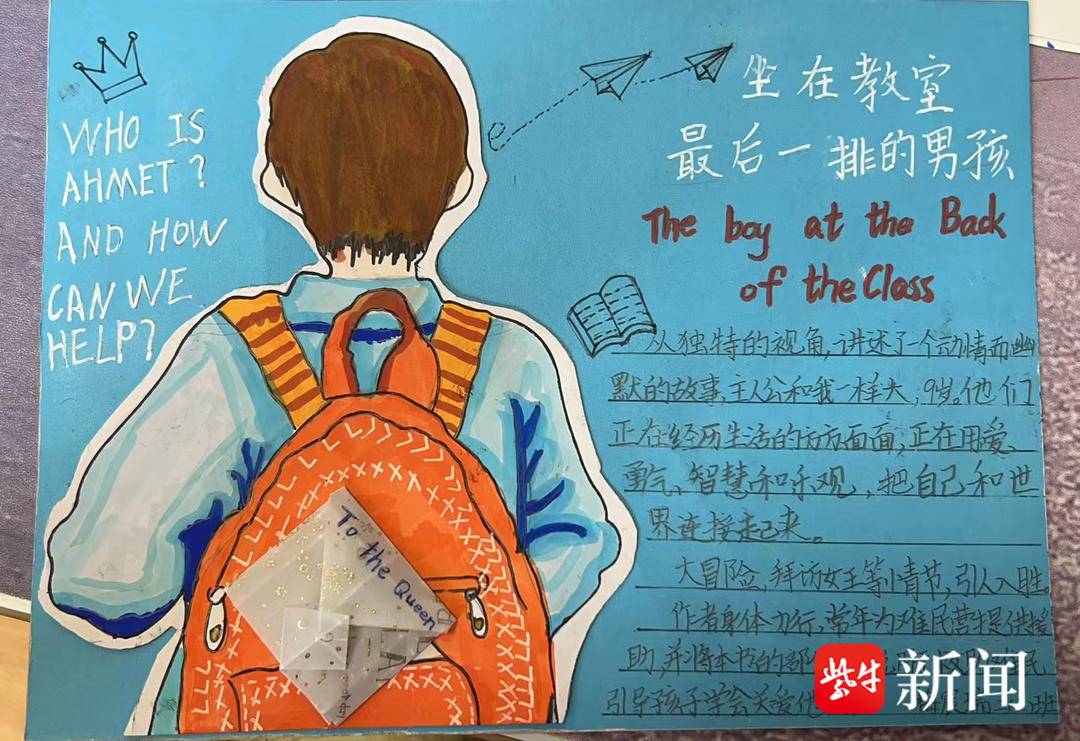 WHO IS
AHMET?
AND HOW
CAN WE
HELP?
坐在教室
最后一排的男孩
The boy at the Back
of the Class
从独特的视角,讲述了一个动情而幽
默的故事,主人公和我一样大,9岁。他们
正在经历生活的方方面面,正在用爱、
勇气、智慧和乐观,把自己和世
界连接起来。
大冒险、拜访女王等小情节,引人入胜。
作者身体力行,常年为难民营提供援
助,并将本书的部
民
引导孩子学会关爱他
班
To the Queen
紫牛新闻